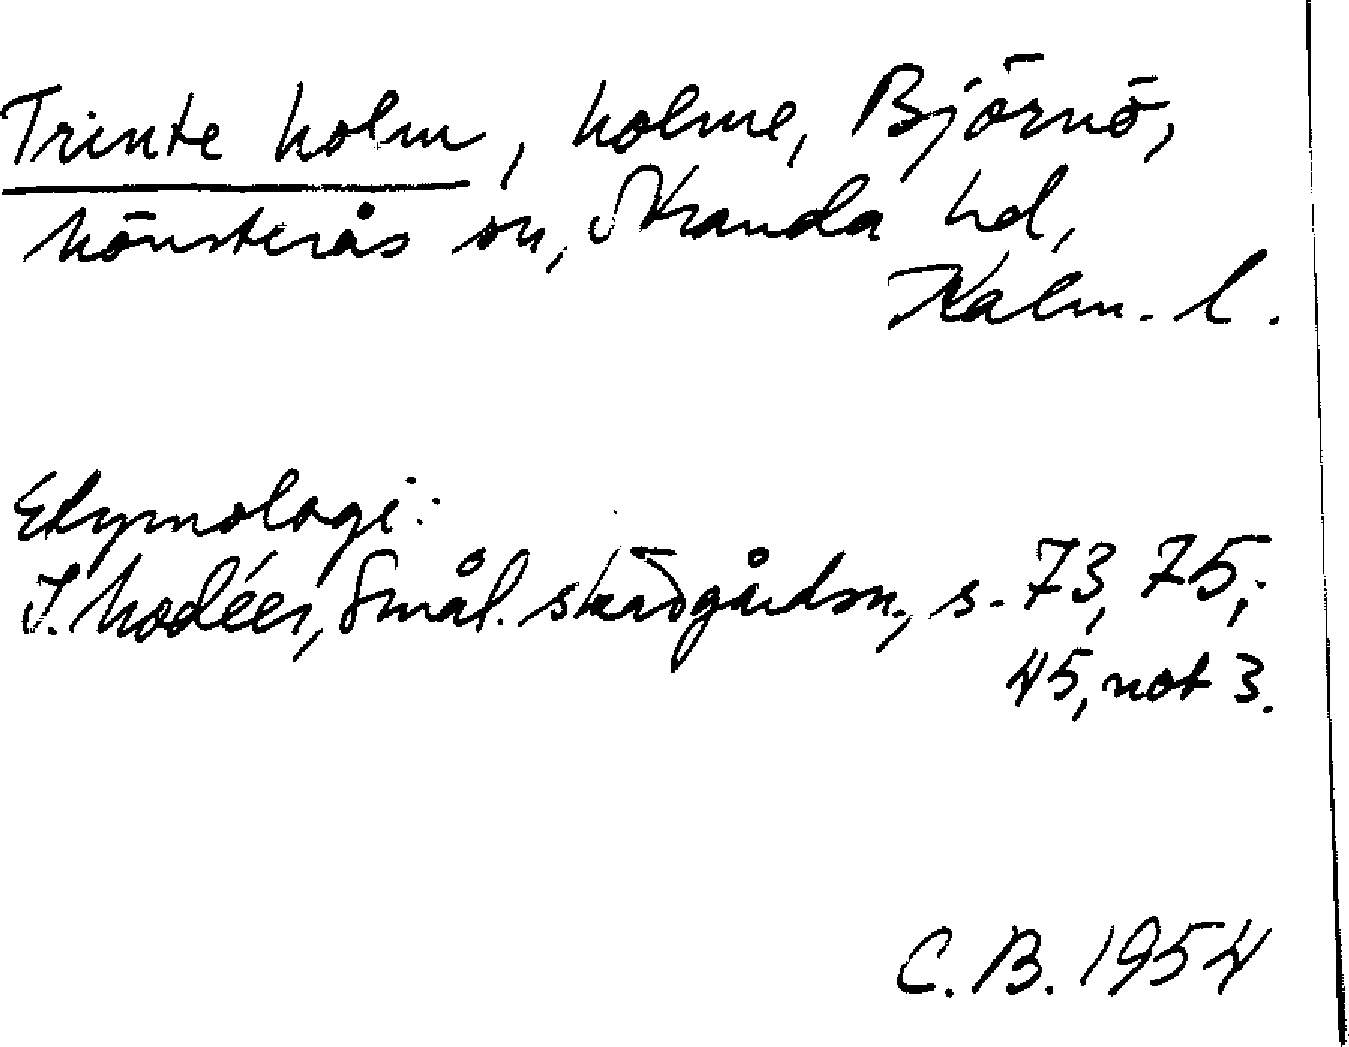 Trinte holm, holme, Björnö,
Mönsterås sn, Stranda hd,
Kalm. l.
Etymologi:
I. Modéer, Smål. skärgårdsn., s. 73, 75,;
45, not 3.
C. B. 1954